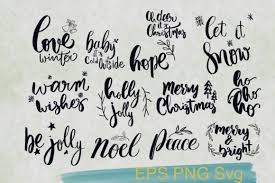 love
winter
baby
it's
Cold
outside
hope
a dear
Christmas
let it
Snow
warm
wishes
holly
jolly
Merry
Christmas
ho
ho
ho
be jolly
Noel
Peace
Merry
& bright
EPS PNG Svg